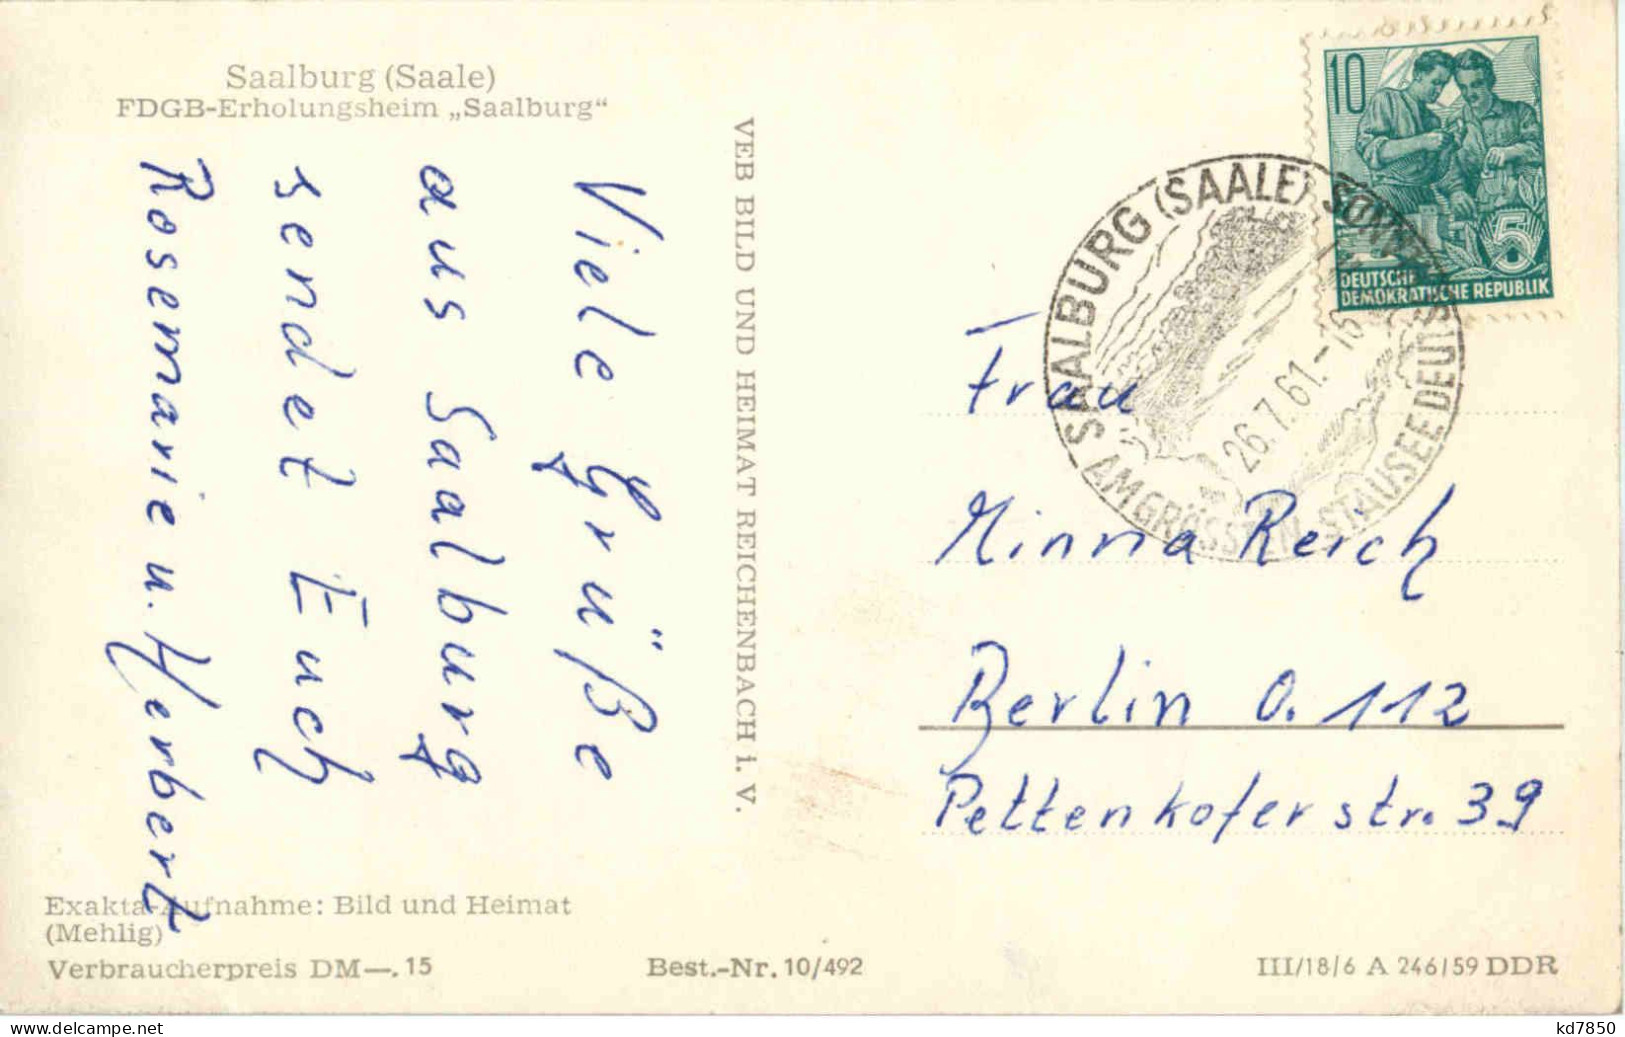 Saalburg (Saale)
FDGB-Erholungsheim „Saalburg“
Viele Grüße
aus Saalburg
sendet Euch
Rosemarie u. Herbert
Exakta-Aufnahme: Bild und Heimat
(Mehlig)
Verbraucherpreis DM—.15
VEB BILD UND HEIMAT REICHENBACH i. V.
Best.-Nr. 10/492
10
5
DEUTSCHE
DEMOKRATISCHE REPUBLIK
SAALBURG (SAALE)
26.7.61.-16
AM GRÖSSTEN STAUSEE DEUT
Frau
Minna Reich
Berlin O. 112
Pettenkoferstr. 39
III/18/6 A 246/59 DDR
www.delcampe.net
kd7850